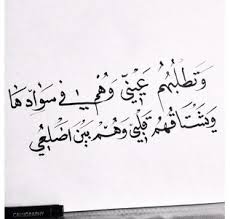 وَتَطلُبُهُم عَينِيّ وَهُم في سَوادِها
وَيَشتَاقُهُم قَلبِيّ وَهُم بَينَ اَضلُعِي
CALLIGRAPHY